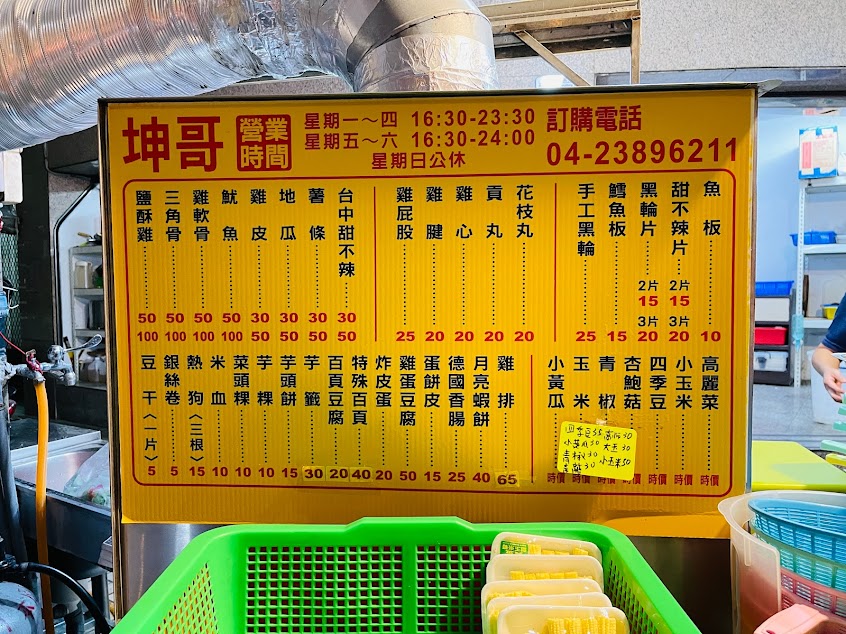 坤哥
營業時間
星期一～四 16:30-23:30
星期五～六 16:30-24:00
星期日公休
訂購電話
04-23896211
鹽酥雞 50 100
三角骨 50 100
雞軟骨 50 100
魷魚 50 100
雞皮 30 50
地瓜 30 50
薯條 30 50
台中甜不辣 30 50
雞屁股 25
雞腱 20
雞心 20
貢丸 20
花枝丸 20
手工黑輪 25
鱈魚板 15
黑輪片 2片 15 3片 20
甜不辣片 2片 15 3片 20
魚板 10
豆干〈一片〉 5
銀絲卷 5
熱狗〈三根〉 15
米血 10
菜頭粿 10
芋粿 10
芋頭餅 15
芋籤 30
百頁豆腐 20
特殊百頁 40
炸皮蛋 20
雞蛋豆腐 50
蛋餅皮 15
德國香腸 25
月亮蝦餅 40
雞排 65
小黃瓜 時價
玉米 時價
青椒 時價
杏鮑菇 時價
四季豆 時價
小玉米 時價
高麗菜 時價
四季豆35
小黃瓜30 大玉30
青椒30 小玉米50